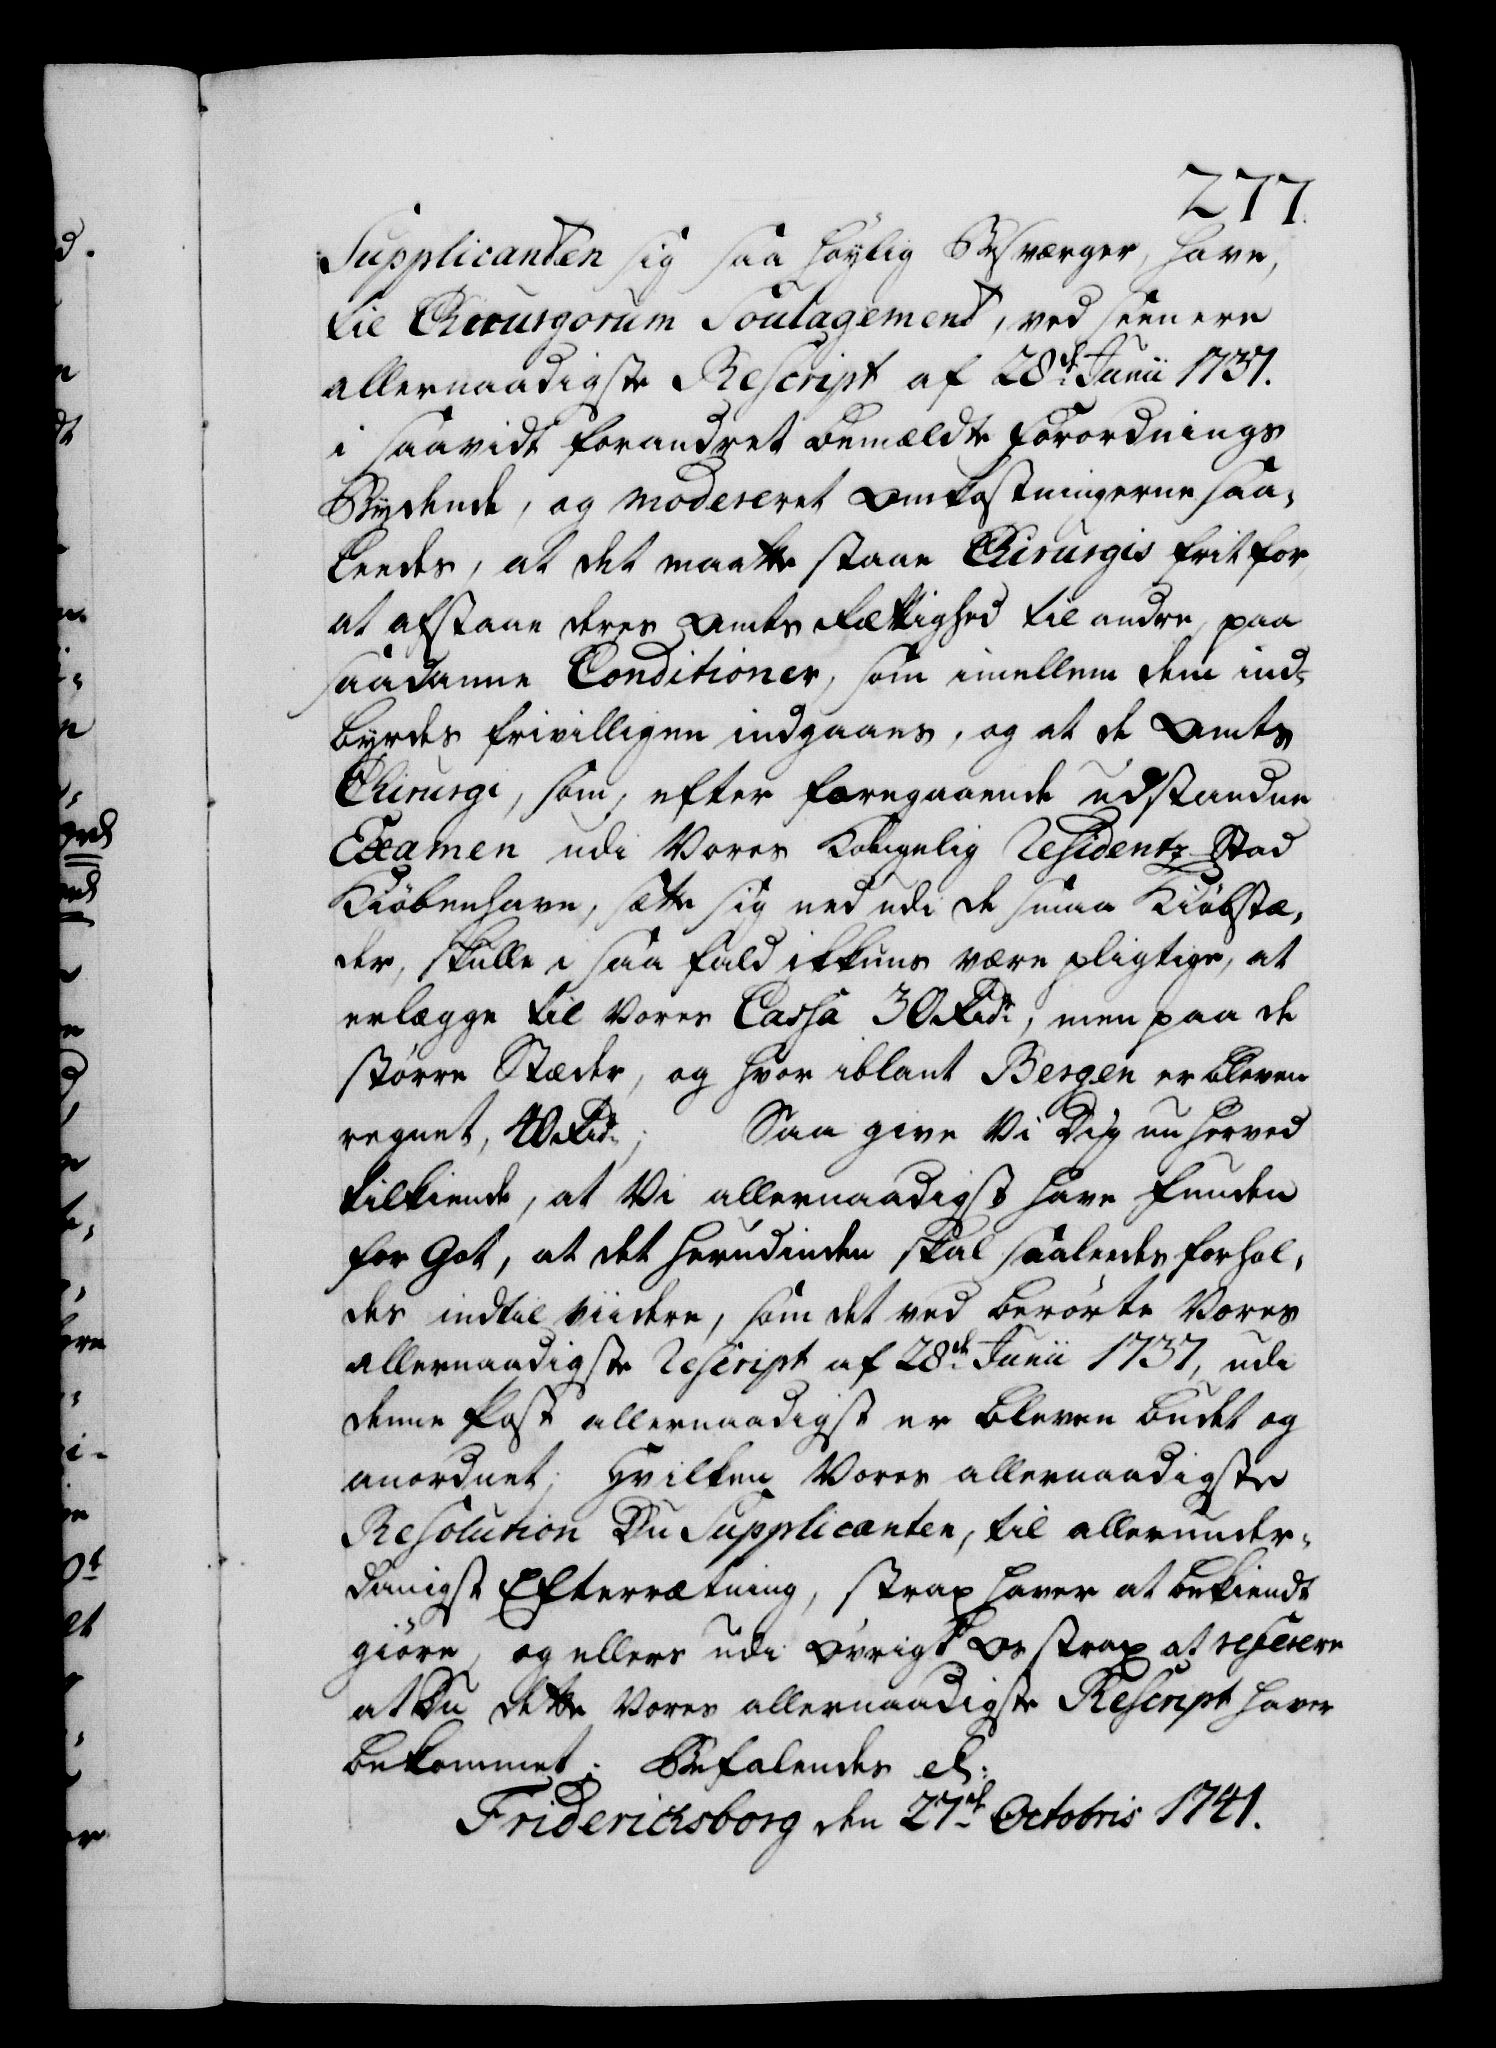 277.
Supplicanten sig saa høÿlig Besværger, have,
til Chirurgorum Soulagement, ved seenere
allernaadigste Rescript af 28de Junii 1737.
i saavidt forandret bemældte Forordnings
Bÿdende, og modereret Omkostningerne saa-
leedes, at det maatte staae Chirurgis frit for,
at afstaae deres Amts Rættighed til andre, paa
saadanne Conditioner, som imellem dem ind-
byrdes frivilligen indgaaes, og at de Amts
Chirurgi, som, efter foregaaende udstandne
Examen udi Vores Kongelig Residentz Stad
Kiöbenhavn, sætte sig ned udi de smaa Kiöbstæ-
der, skulle i saa fald ikkuns være pligtige, at
erlægge til Vores Cassa 30 Rdr, men paa de
større Stæder, og hvor iblant Bergen er bleven
regnet, 40 Rdr; Saa give Vi Dig nu herved
tilkiende, at Vi allernaadigst have funden
for Got, at det herudinden skal saaleedes forhol-
des indtil viidere, som det ved berørte Vores
allernaadigste Rescript af 28de Junii 1737, udi
denne Post allernaadigst er bleven budet og
anordnet; Hvilken Vores allernaadigste
Resolution Du Supplicanten, til allerunder-
danigst Efterrætning, strax haver at bekiendt
giöre, og ellers udi Øvrigt Os strax at referere
at Du dette Vores allernaadigste Rescript haver
bekommet. Befalendes etc:
Friderichsborg den 27de Octobris 1741.